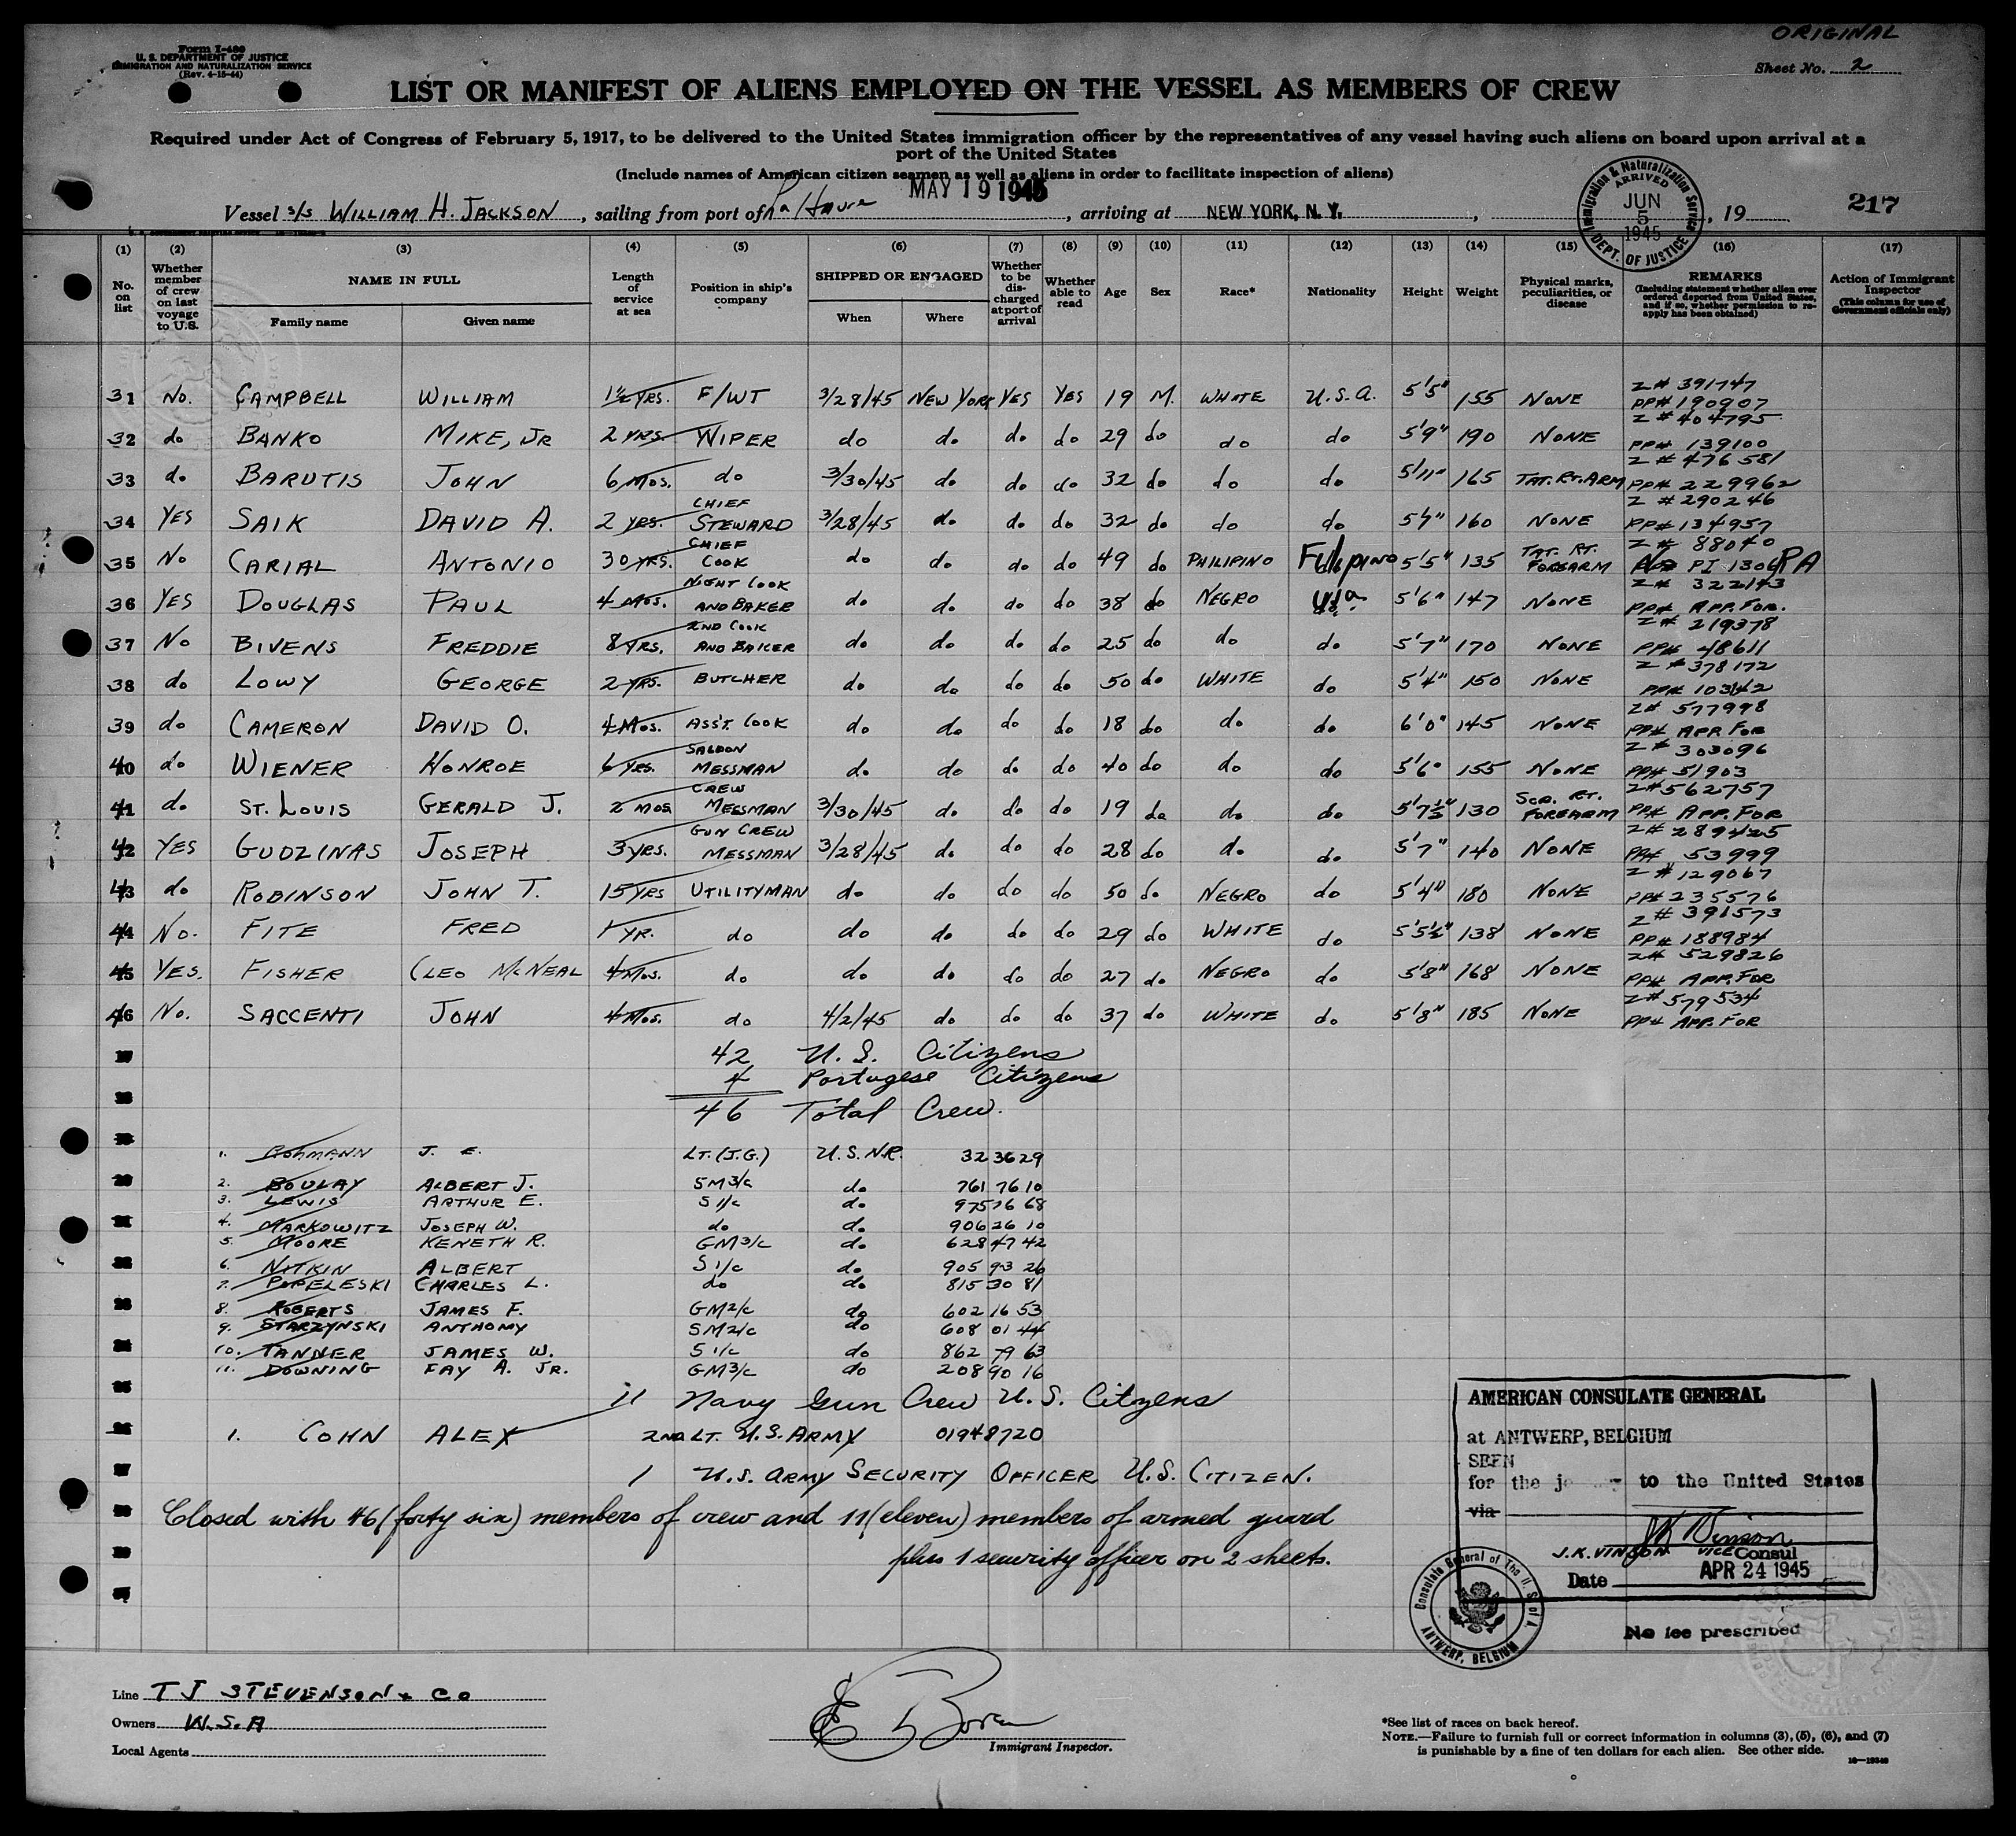 ORIGINAL
Form I-480
U. S. DEPARTMENT OF JUSTICE
IMMIGRATION AND NATURALIZATION SERVICE
(Rev. 4-15-44)
Sheet No. 2
LIST OR MANIFEST OF ALIENS EMPLOYED ON THE VESSEL AS MEMBERS OF CREW
Required under Act of Congress of February 5, 1917, to be delivered to the United States immigration officer by the representatives of any vessel having such aliens on board upon arrival at a
port of the United States
(Include names of American citizen seamen as well as aliens in order to facilitate inspection of aliens)
MAY 19 1945
Vessel S/S WILLIAM H. JACKSON, sailing from port of La Havre, arriving at NEW YORK, N. Y., , 19
Immigration & Naturalization Service ARRIVED JUN 5 1945 DEPT. OF JUSTICE
217
(1) (2) (3) (4) (5) (6) (7) (8) (9) (10) (11) (12) (13) (14) (15) (16) (17)
No. on list
Whether member of crew on last voyage to U.S.
NAME IN FULL
Family name Given name
Length of service at sea
Position in ship's company
SHIPPED OR ENGAGED
When Where
Whether to be discharged at port of arrival
Whether able to read
Age Sex Race* Nationality Height Weight
Physical marks, peculiarities, or disease
REMARKS
(Including statement whether alien ever ordered deported from United States, and if so, whether permission to reapply has been obtained)
Action of Immigrant Inspector
(This column for use of Government officials only)
31 No. CAMPBELL WILLIAM 1½ YRS. F/WT 3/28/45 NEW YORK YES YES 19 M. WHITE U.S.A. 5'5" 155 NONE Z# 391747 PP# 190907
32 do BANKO MIKE, JR 2 YRS. WIPER do do. do do 29 do do do 5'9" 190 NONE Z# 404795 PP# 139100
33 do. BARUTIS JOHN 6 MOS. do 3/30/45 do. do do 32 do do do 5'11" 165 TAT. RT. ARM Z# 476581 PP# 229962
34 YES SAIK DAVID A. 2 YRS. CHIEF STEWARD 3/28/45 do. do do 32 do do do 5'7" 160 NONE Z# 290246 PP# 134957
35 NO CARIAL ANTONIO 30 YRS. CHIEF COOK do do. do do 49 do PHILIPINO Filipino 5'5" 135 TAT. RT. FOREARM Z# 88040 PI 1306 RA
36 YES DOUGLAS PAUL 4 MOS. NIGHT COOK AND BAKER do do. do do 38 do NEGRO Usa 5'6" 147 NONE Z# 322143 PP# APP. FOR.
37 NO BIVENS FREDDIE 8 YRS. 2ND COOK AND BAKER do do. do do 25 do do do 5'7" 170 NONE Z# 219378 PP# 48611
38 do LOWY GEORGE 2 YRS. BUTCHER do do do do 50 do WHITE do 5'4" 150 NONE Z# 378172 PP# 103142
39 do CAMERON DAVID O. 4 MOS. ASS'T. COOK do do do do 18 do do do 6'0" 145 NONE Z# 577998 PP# APP. FOR
40 do WIENER HONROE 6 YRS. SALOON MESSMAN do do do do 40 do do do 5'6" 155 NONE Z# 303096 PP# 51903
41 do. ST. LOUIS GERALD J. 2 MOS CREW MESSMAN 3/30/45 do. do do 19 do do. do 5'7½" 130 SCR. RT. FOREARM Z# 562757 PP# APP. FOR
42 YES GUDZINAS JOSEPH 3 YRS. GUN CREW MESSMAN 3/28/45 do. do do 28 do do. do 5'7" 140 NONE Z# 289425 PP# 53999
43 do ROBINSON JOHN T. 15 YRS UTILITYMAN do do. do do 50 do NEGRO do 5'4" 180 NONE Z# 129067 PP# 235576
44 NO. FITE FRED 1 YR. do do do do do 29 do WHITE do 5'5½" 138 NONE Z# 391573 PP# 188984
45 YES. FISHER CLEO McNEAL 4 MOS. do do do do do 27 do NEGRO do 5'8" 168 NONE Z# 529826 PP# APP. FOR
46 NO. SACCENTI JOHN 4 MOS. do 4/2/45 do do do 37 do WHITE do 5'8" 185 NONE Z# 579534 PP# APP. FOR
42 U. S. Citizens
4 Portugese Citizens
46 Total Crew.
1. J. E. LT. (J.G.) U.S.N.R. 323629
2. BOULAY ALBERT J. SM3/c do. 761 76 10
3. LEWIS ARTHUR E. S1/c do. 975 76 68
4. MARKOWITZ JOSEPH W. do do. 906 26 10
5. MOORE KENETH R. GM3/c do. 628 47 42
6. NITKIN ALBERT S1/c do. 905 93 26
7. POPELESKI CHARLES L. do do. 815 30 81
8. ROBERTS JAMES F. GM2/c do 602 16 53
9. STARZYNSKI ANTHONY SM2/c do 608 01 44
10. TANNER JAMES W. S1/c do 862 79 63
11. DOWNING FAY A. JR. GM3/c do 208 90 16
11 Navy Gun Crew U.S. Citzens
1. COHN ALEX 2ND LT. U.S. ARMY 01948720
1 U.S. ARMY SECURITY OFFICER U.S. CITIZEN.
Closed with 46 (forty six) members of crew and 11 (eleven) members of armed guard
plus 1 security officer on 2 sheets.
AMERICAN CONSULATE GENERAL
at ANTWERP, BELGIUM
SEEN
for the to the United States
via
J. K. VINSON VICE Consul
Date APR 24 1945
Consulate General of The U. S. of A. ANTWERP, BELGIUM
No fee prescribed
Line T J STEVENSON & CO
Owners W.S.A
Local Agents
Immigrant Inspector.
*See list of races on back hereof.
NOTE.—Failure to furnish full or correct information in columns (3), (5), (6), and (7)
is punishable by a fine of ten dollars for each alien. See other side.